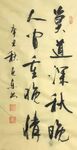 莫道深秋晚
人間重晚情